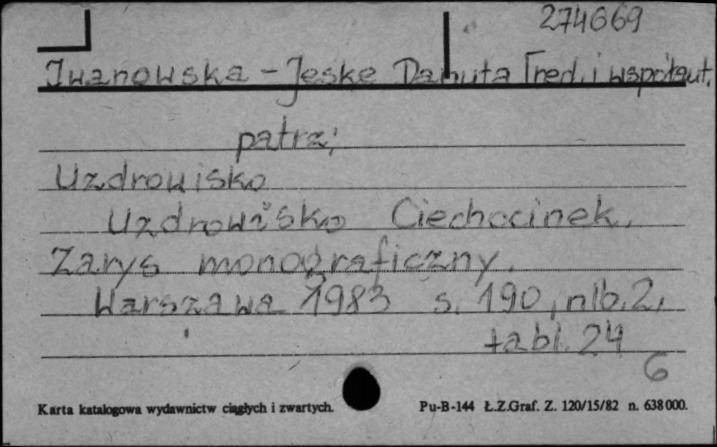 274669
Iwanowska-Jeske Danuta [red. i współaut.
patrz:
Uzdrowisko
Uzdrowisko Ciechocinek.
Zarys monograficzny.
Warszawa 1983 s. 190, nlb. 2,
tabl. 24
6
Karta katalogowa wydawnictw ciągłych i zwartych. Pu-B-144 Ł.Z.Graf. Z. 120/15/82 n. 638000.